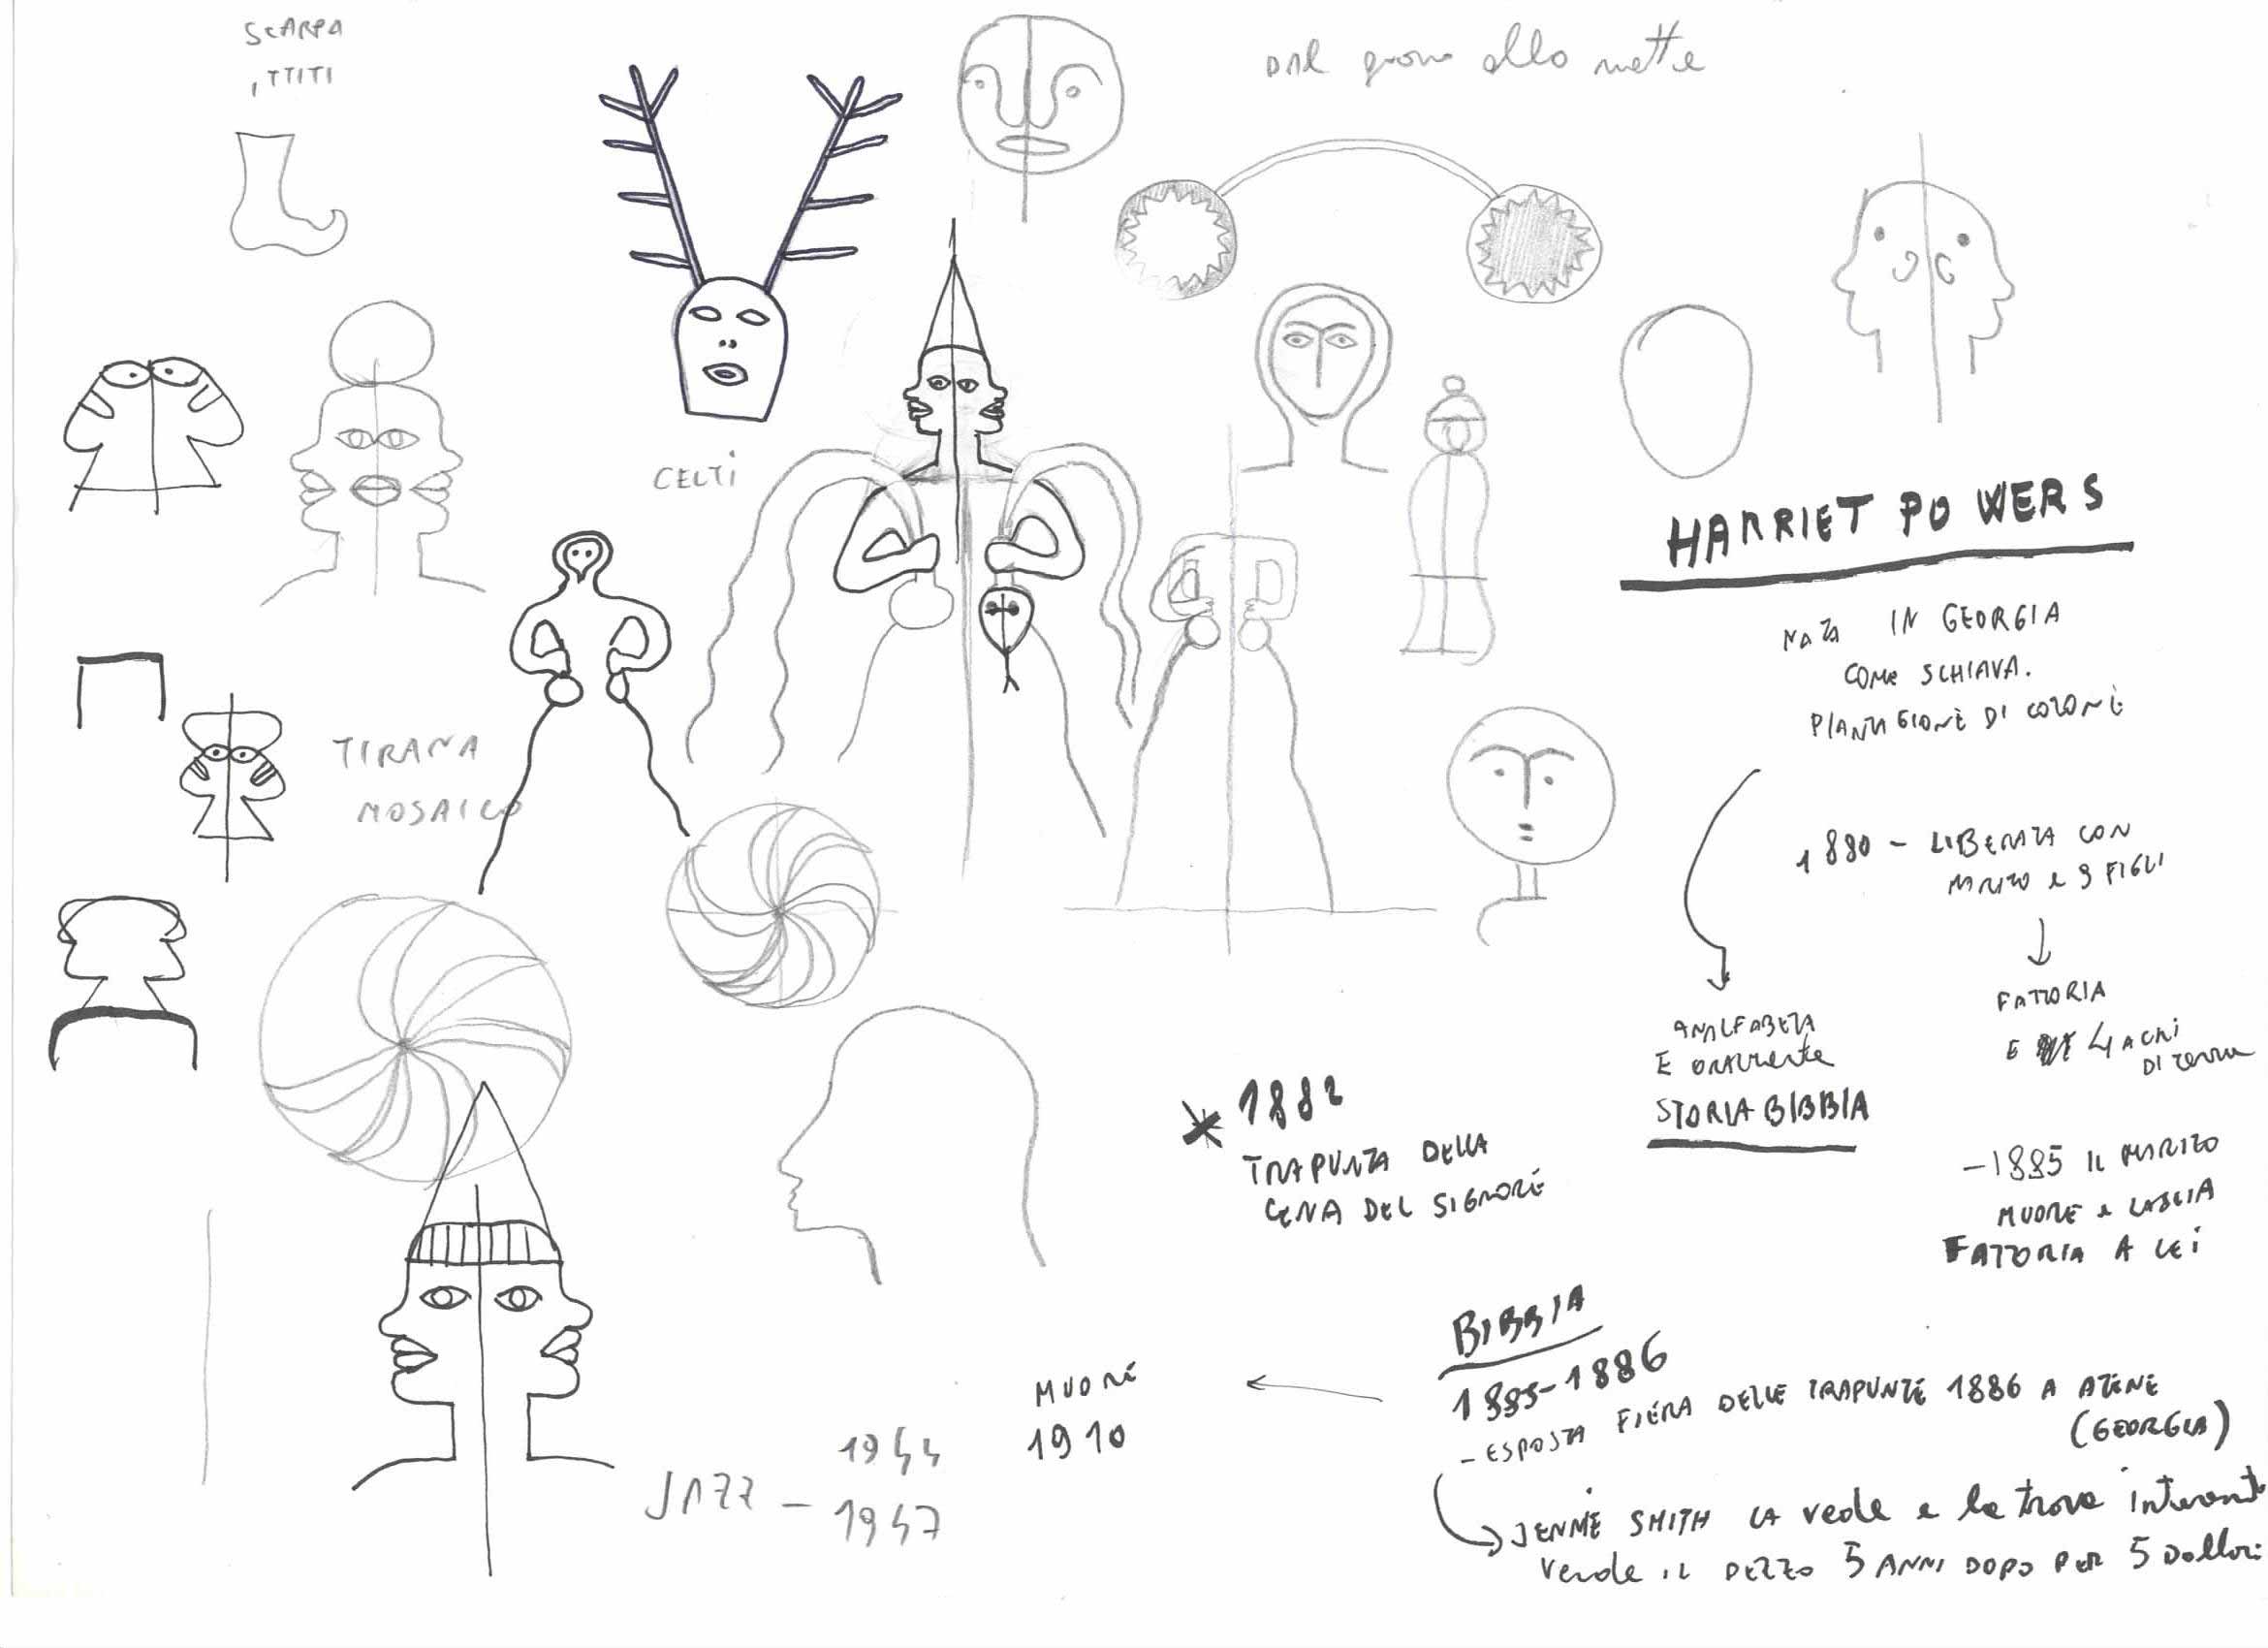 SCARPA
ITTITI
DAL giorno alla notte
CELTI
TIRANA
MOSAICO
HARRIET POWERS
NATA IN GEORGIA
COME SCHIAVA.
PIANTAGIONE DI COTONE
1880 - LIBERATA CON
MARITO e 9 FIGLI
FATTORIA
E 4 ACRI
DI terra
ANALFABETA
E ORALMENTE
STORIA BIBBIA
- 1885 IL MARITO
MUORE e LASCIA
FATTORIA A LEI
1882
TRAPUNTA DELLA
CENA DEL SIGNORE
BIBBIA
1885-1886
- ESPOSTA FIERA DELLE TRAPUNTE 1886 A ATENE
(GEORGIA)
JENNIE SMITH LA vede e la trova interessante
vende IL PEZZO 5 ANNI DOPO PER 5 Dollari
MUORE
1910
JAZZ - 1944
1947